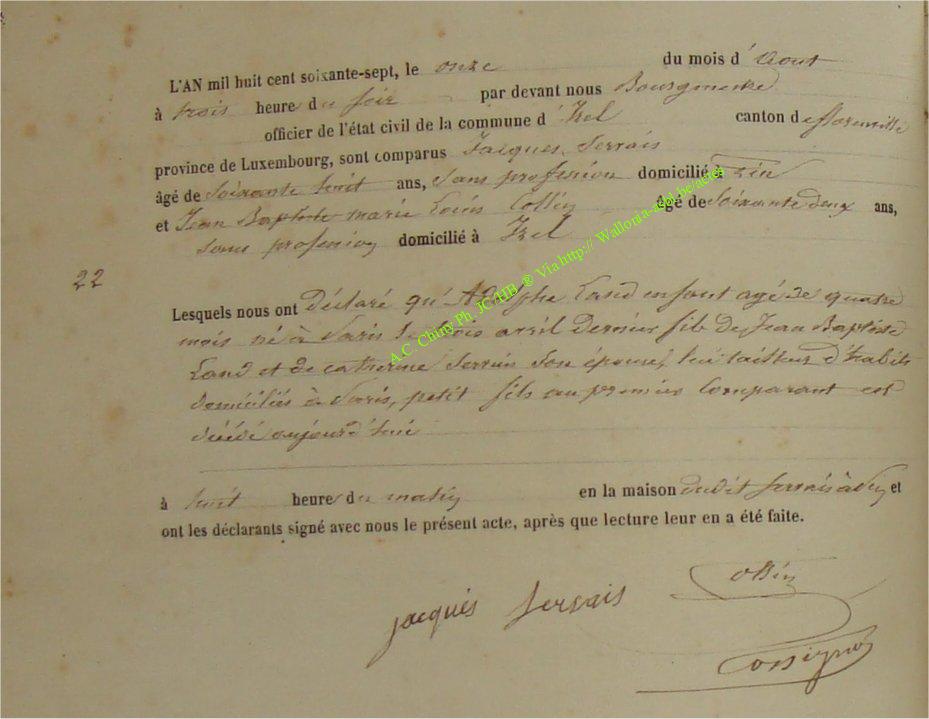 L'AN mil huit cent soixante-sept, le onze du mois d' Aout
à trois heure du soir par devant nous Bourgmestre
officier de l'état civil de la commune d' Izel canton de florenville
province de Luxembourg, sont comparus Jacques Servais
âgé de soixante huit ans, sans profession domicilié à
et Jean Baptiste marie Louis Collin âgé de soixante deux ans,
sans profession domicilié à Izel
22
Lesquels nous ont déclaré qu' Adolphe Land enfant agé de quatre
mois né à Paris le trois avril dernier fils de Jean Baptiste
Land et de catherine Servais son épouse, lui tailleur d'habits
domiciliés à Paris, petit fils au premier comparant est
décédé aujourd'hui
à huit heure du matin en la maison dudit servais à et
ont les déclarants signé avec nous le présent acte, après que lecture leur en a été faite.
jacques servais
A.C. Chiny Ph. JC/HB ® Via http:// Wallonia-asbl.be/actes